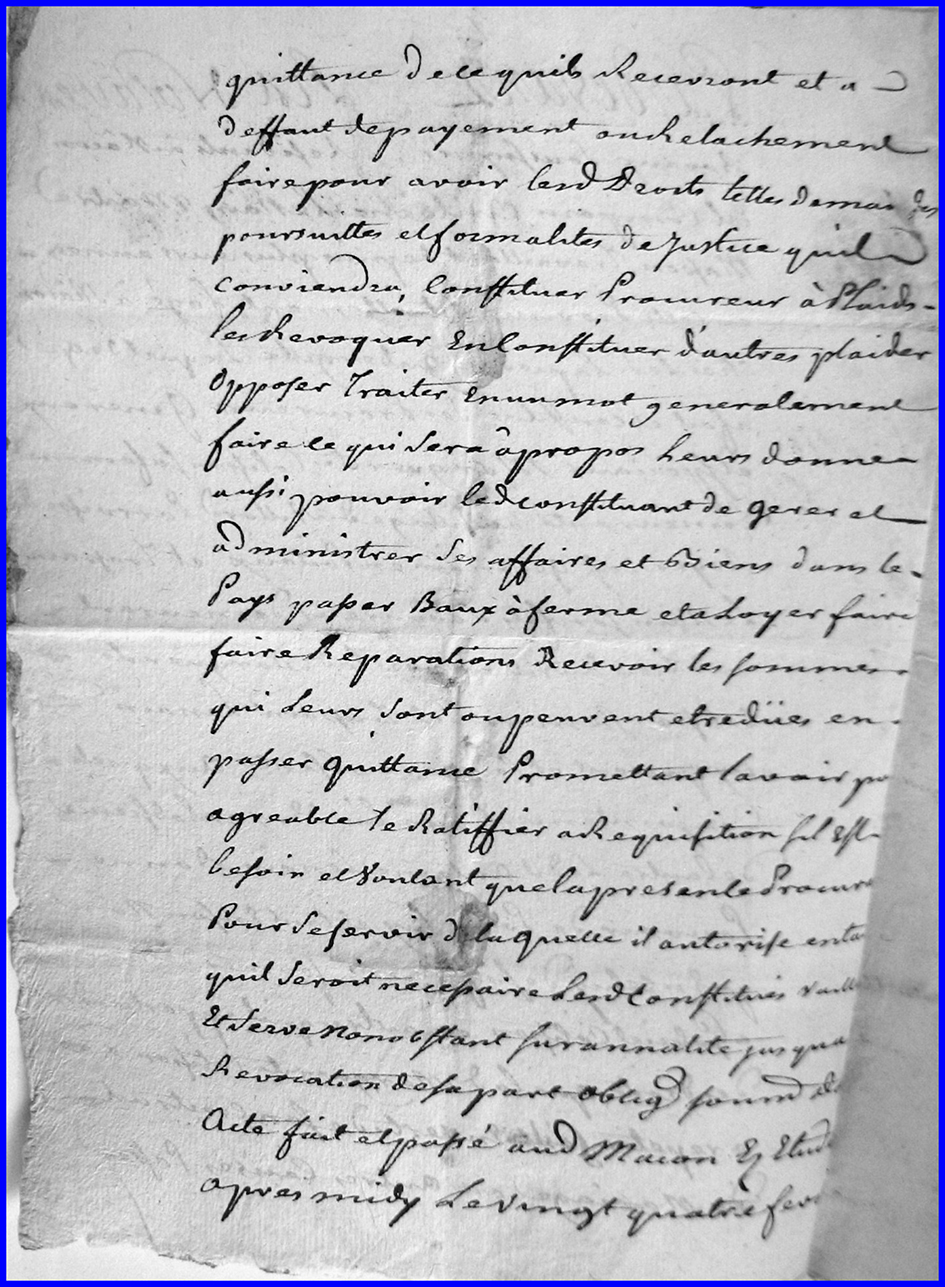 quittance de ce quils Recevront et a
deffaut de payement ou Relachement
faire pour avoir lesd Droits telles demandes
poursuittes et formalités de Justice quil
conviendra, Constituer Procureur à Plaids
les Revoquer En Constituer d'autres plaider
Opposer Traiter En un mot generalement
faire ce qui sera à propos Leurs donne
aussi pouvoir led constituant de gerer et
administrer Ses affaires et Biens dans le
Pays passer Baux à ferme et a Loyer faire
faire Reparations Recevoir les sommes
qui Leurs sont ou peuvent etre dües en
passer quittance Promettant lavoir po
agreable le Ratiffier a Requisition sil Est
besoin et Voulant que la presente Procure
Pour se servir de la quelle il autorise enta
quil seroit necessaire Lesd Constitués vaille
Et Serve nonobstant surannalité jusqua
Revocation de sa part oblig soumd de
Acte fait et passé aud Macon Es Etud
apres midy Le vingt quatre fev